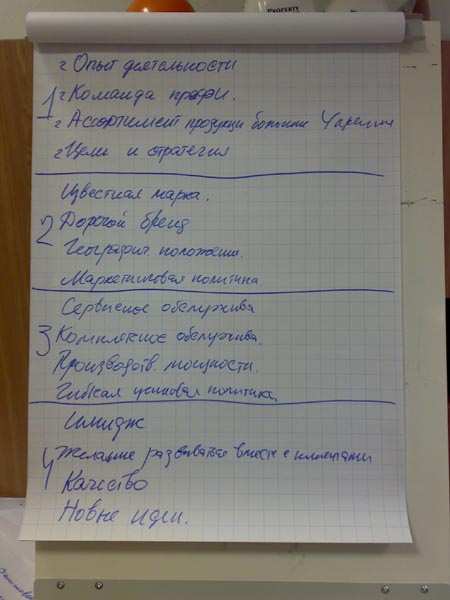 PROPERTY
г Опыт деятельности
1 г Команда профи.
г Ассортимент продукци большими
г Цели и стратегия
Известная марка.
2 Дорогой бренд
Географич. положение.
Маркетинговая политика.
Сервисное обслужива
3 Комплексное обслужива.
Производств. мощности.
Гибкая ценовая политика.
Имидж
4 Желание развиваться вместе с клиентами
Качество
Новые идеи.